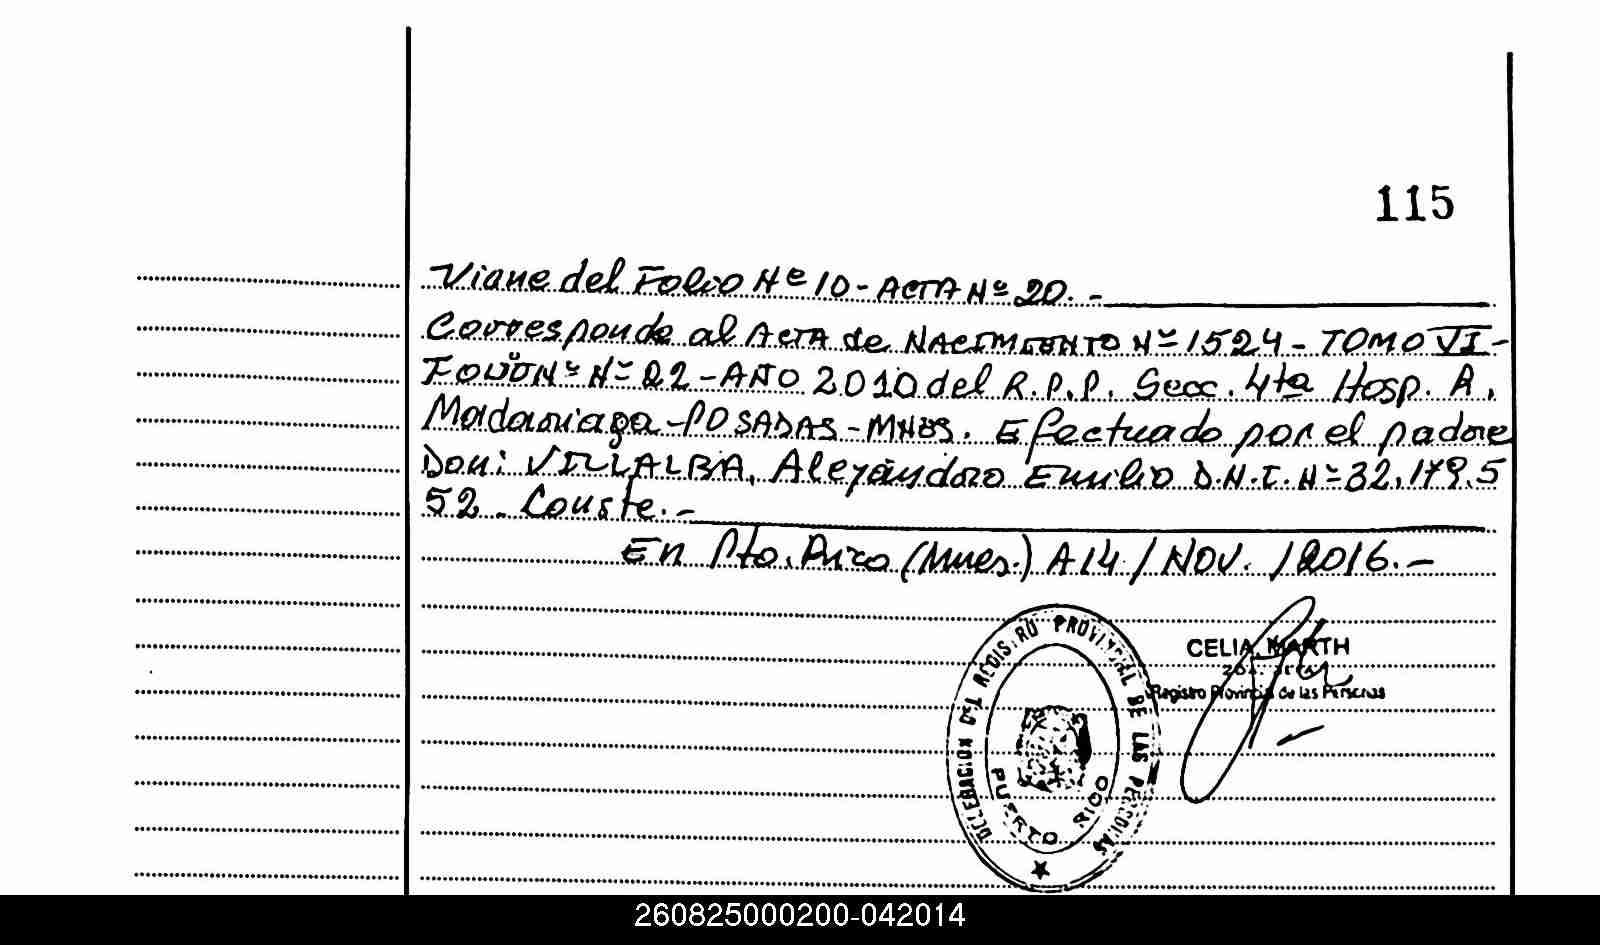 115
Viene del Folio Nº 10 - ACTA Nº 20. -
Corresponde al ACTA de NACIMIENTO Nº 1524 - TOMO VI -
Nº 22 - AÑO 2010 del R.P.P. Secc. 4ta Hosp. R.
Madariaga - POSADAS - MNES. Efectuado por el padre
Don: VILLALBA, Alejandro Emilio D.N.I. Nº 32.179.5
52. Conste. -
En Pto. Rico (Mnes.) A 14 / NOV. / 2016. -
CELIA MARTH
Registro Provincial de las Personas
DELEGACION DEL REGISTRO PROVINCIAL DE LAS PERSONAS
PUERTO RICO
260825000200-042014